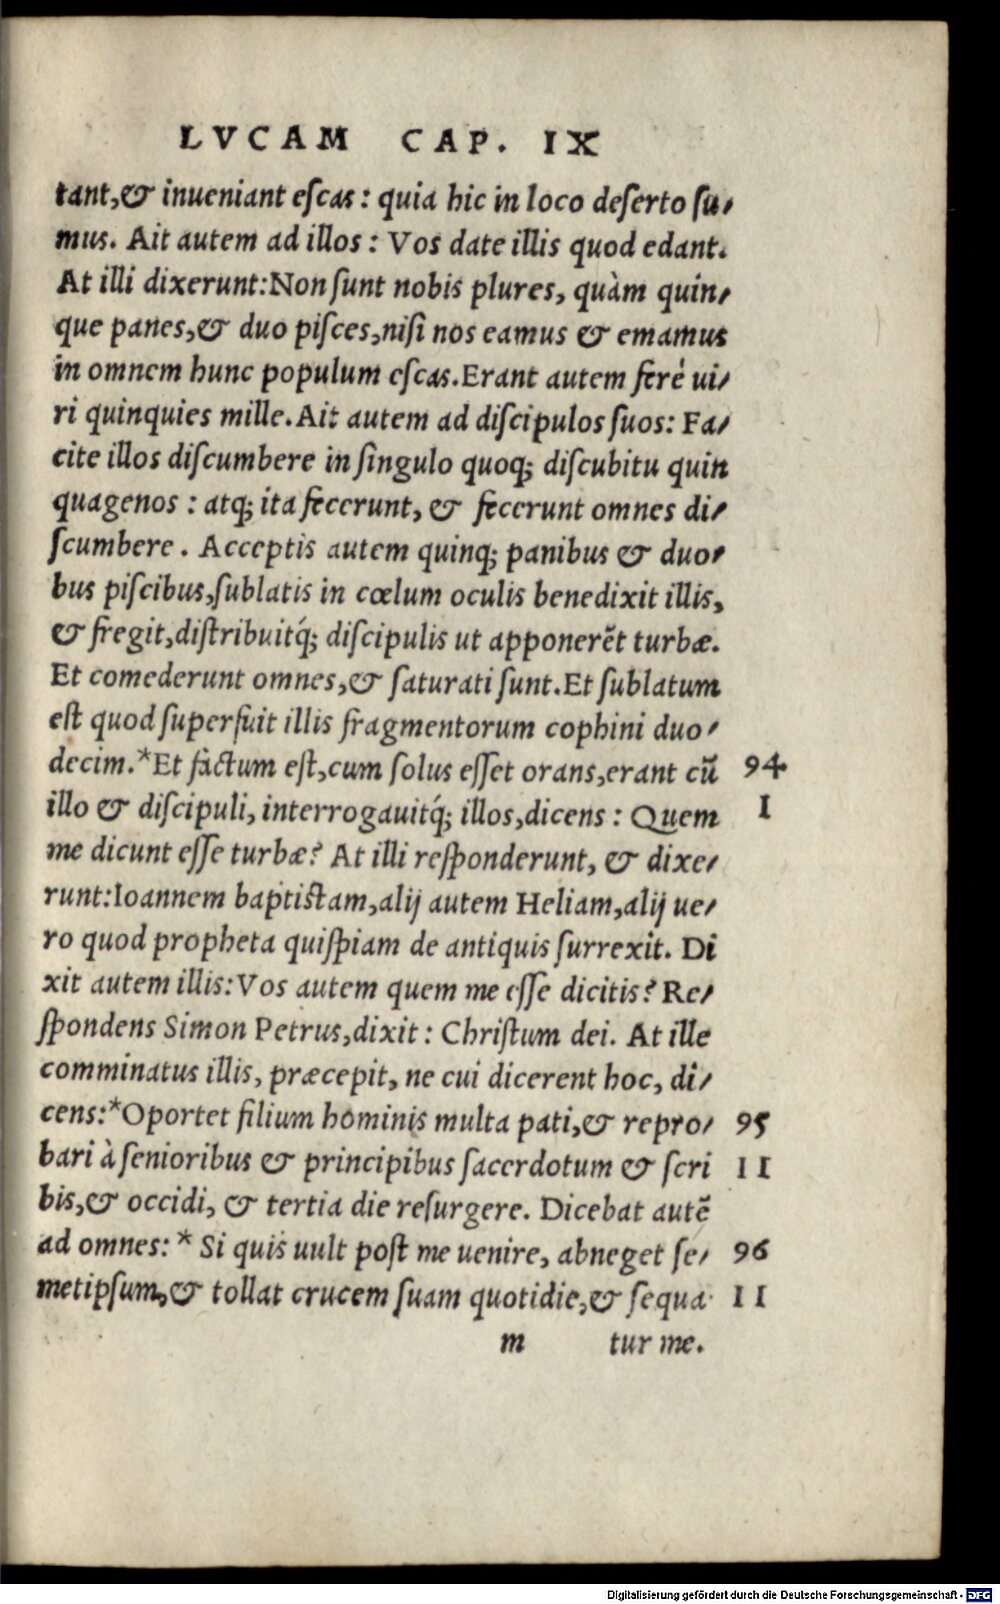 LVCAM CAP. IX
tant,& inueniant eſcas : quia hic in loco deſerto ſu-
mus. Ait autem ad illos : Vos date illis quod edant.
At illi dixerunt:Non ſunt nobis plures, quàm quin-
que panes,& duo piſces,niſi nos eamus & emamus
in omnem hunc populum eſcas.Erant autem ferè ui-
ri quinquies mille.Ait autem ad diſcipulos ſuos: Fa-
cite illos diſcumbere in ſingulo quoq; diſcubitu quin
quagenos : atq; ita fecerunt, & fecerunt omnes di-
ſcumbere . Acceptis autem quinq; panibus & duo-
bus piſcibus,ſublatis in cœlum oculis benedixit illis,
& fregit,diſtribuitq́; diſcipulis ut apponerẽt turbæ.
Et comederunt omnes,& ſaturati ſunt.Et ſublatum
eſt quod ſuperfuit illis fragmentorum cophini duo-
decim.*Et factum eſt,cum ſolus eſſet orans,erant cũ 94
illo & diſcipuli, interrogauitq́; illos,dicens : Quem I
me dicunt eſſe turbæ? At illi reſponderunt, & dixe-
runt:Ioannem baptistam,alij autem Heliam,alij ue-
ro quod propheta quiſpiam de antiquis ſurrexit. Di
xit autem illis:Vos autem quem me eſſe dicitis? Re-
ſpondens Simon Petrus,dixit : Chriſtum dei. At ille
comminatus illis, præcepit, ne cui dicerent hoc, di-
cens:*Oportet filium hominis multa pati,& repro- 95
bari à ſenioribus & principibus ſacerdotum & ſcri II
bis,& occidi, & tertia die reſurgere. Dicebat autẽ
ad omnes: * Si quis uult poſt me uenire, abneget ſe- 96
metipſum,& tollat crucem ſuam quotidie,& ſequa- II
m tur me.
Digitalisierung gefördert durch die Deutsche Forschungsgemeinschaft - DFG